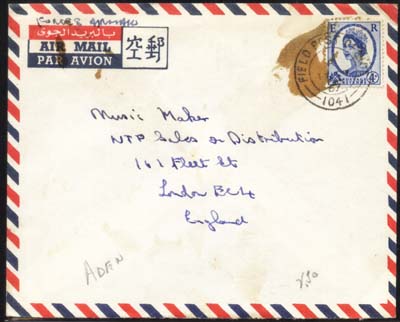 FORCES AIRMAIL
بالبريد الجوى
AIR MAIL
PAR AVION
空郵
E R
FIELD
1041
Music Maker
NTP Sales or Distribution
161 Fleet St
London EC4
England
ADEN